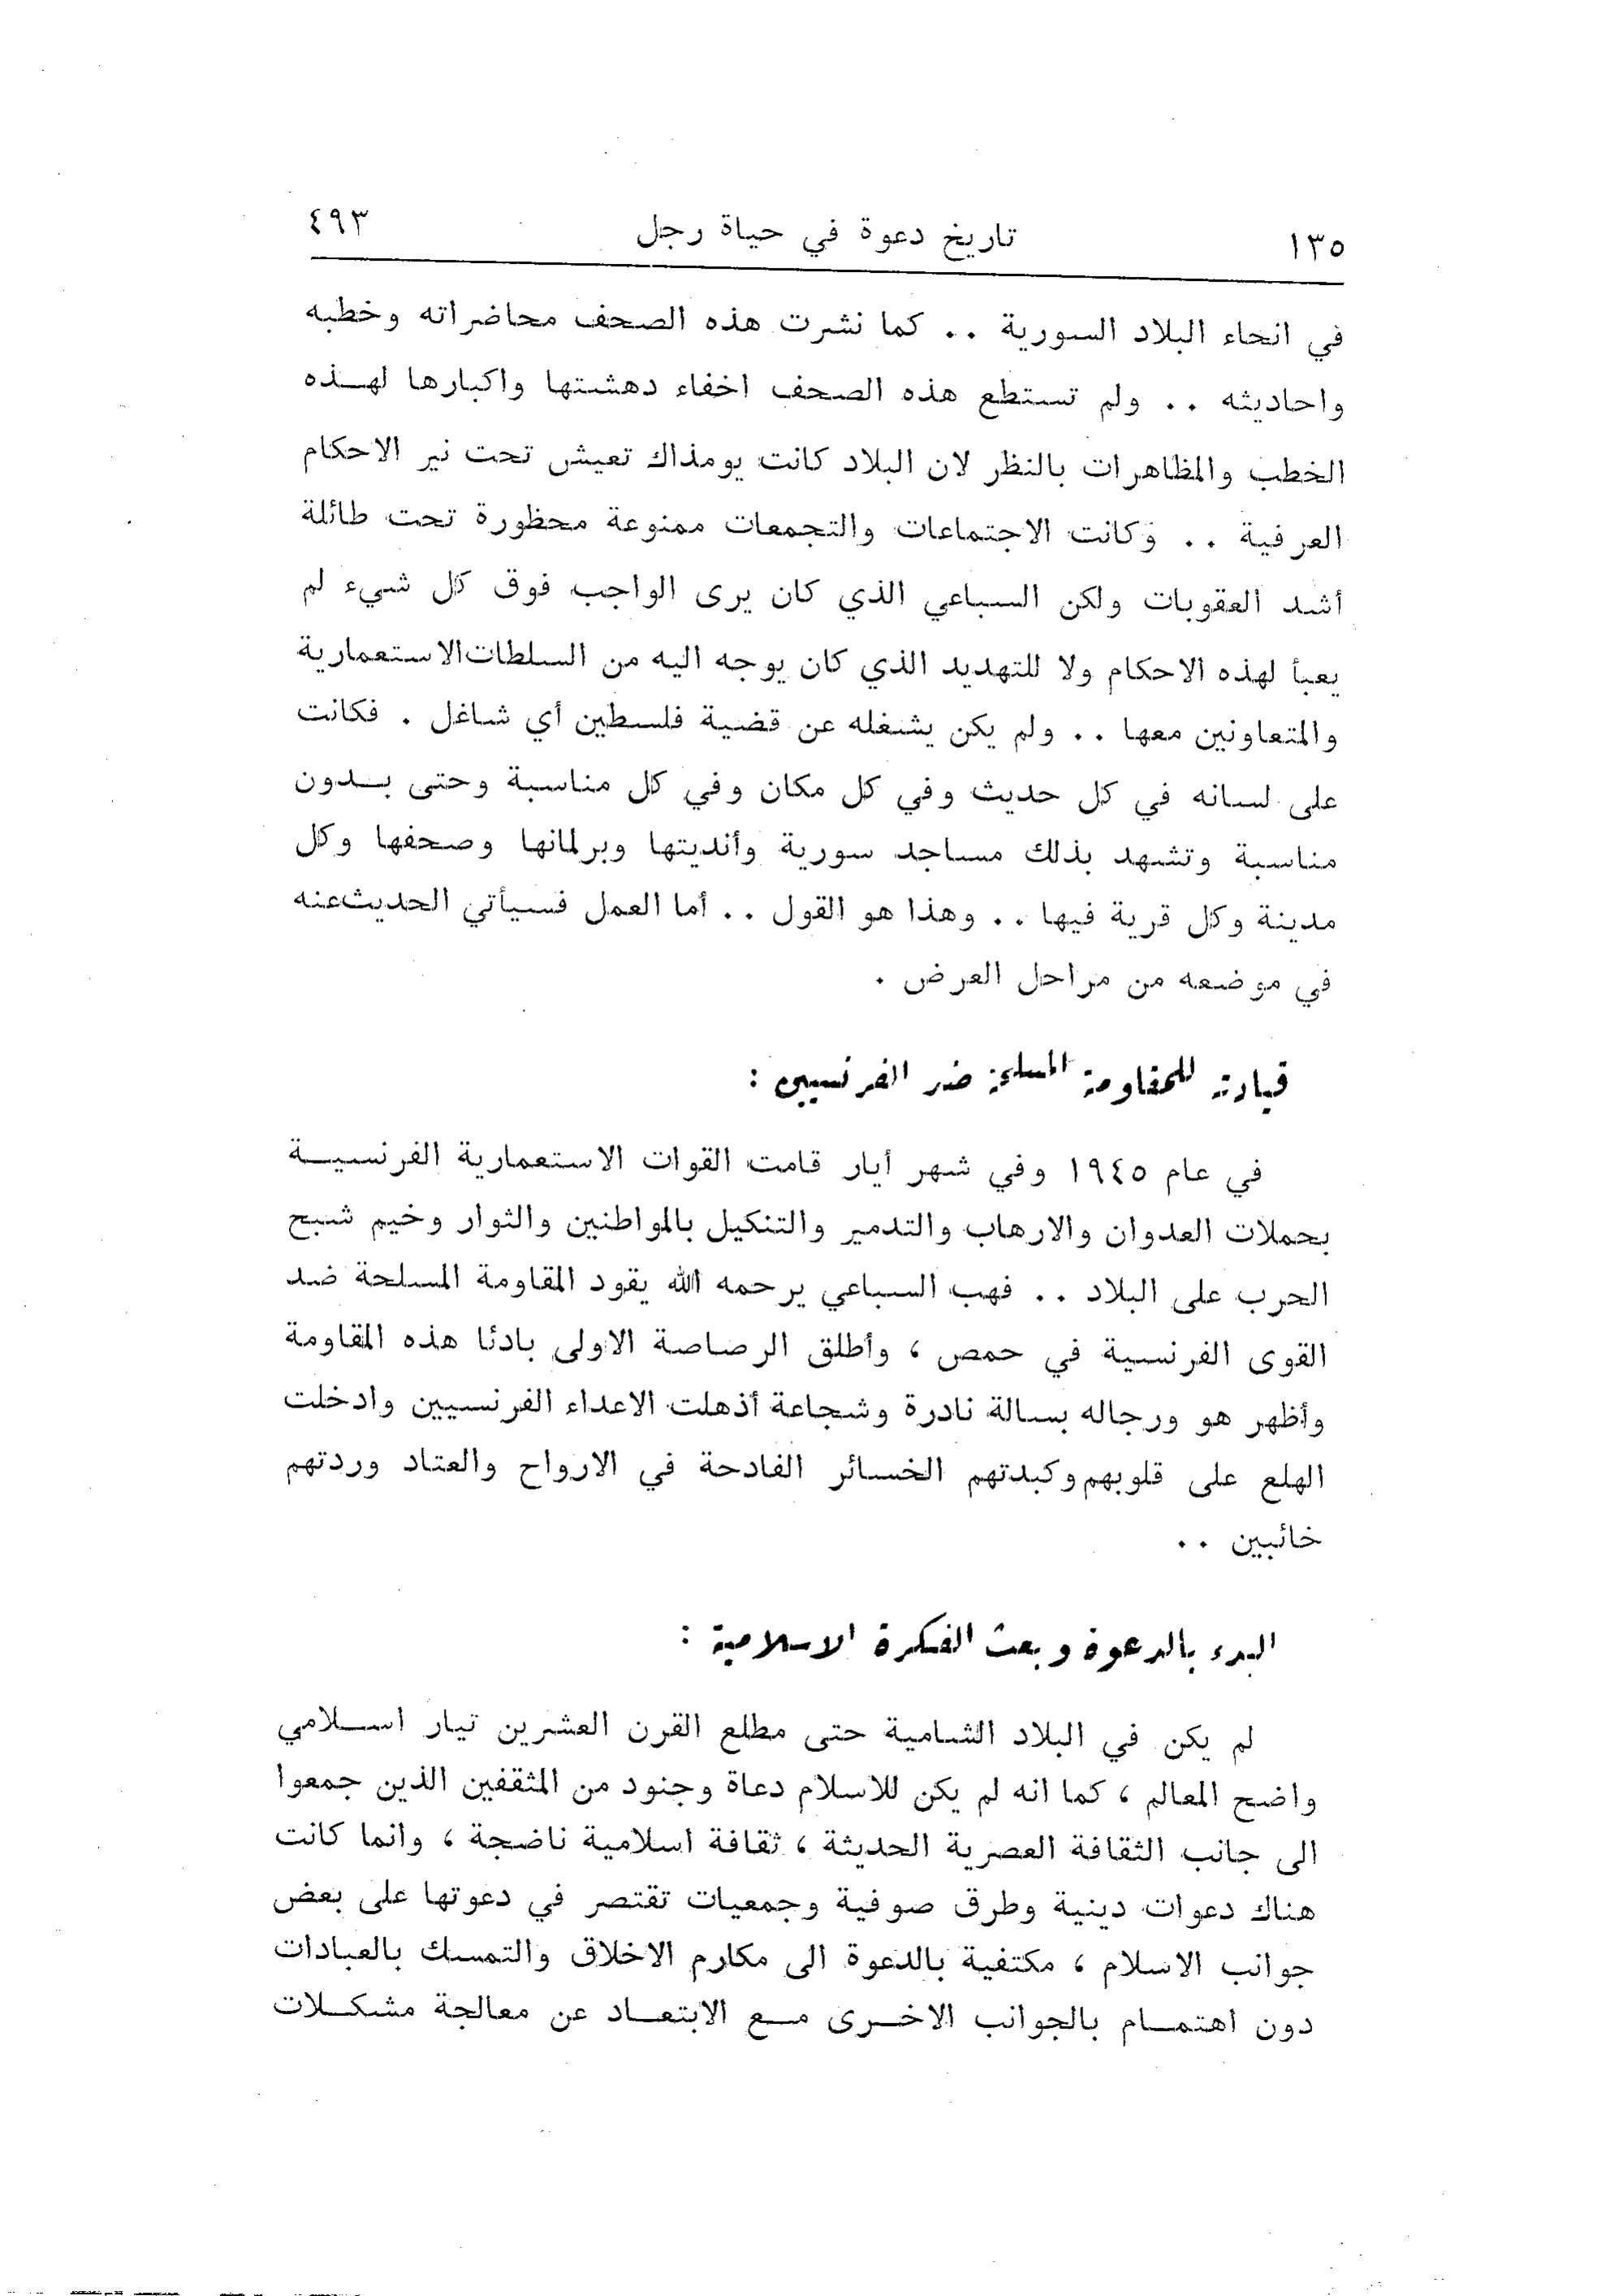 ١٣٥ تاريخ دعوة في حياة رجل ٤٩٣
في انحاء البلاد السورية .. كما نشرت هذه الصحف محاضراته وخطبه
واحاديثه .. ولم تستطع هذه الصحف اخفاء دهشتها واكبارها لهــذه
الخطب والمظاهرات بالنظر لان البلاد كانت يومذاك تعيش تحت نير الاحكام
العرفية .. وكانت الاجتماعات والتجمعات ممنوعة محظورة تحت طائلة
أشد العقوبات ولكن السباعي الذي كان يرى الواجب فوق كل شيء لم
يعبأ لهذه الاحكام ولا للتهديد الذي كان يوجه اليه من السلطات الاستعمارية
والمتعاونين معها .. ولم يكن يشغله عن قضية فلسطين أي شاغل . فكانت
على لسانه في كل حديث وفي كل مكان وفي كل مناسبة وحتى بــدون
مناسبة وتشهد بذلك مساجد سورية وأنديتها وبرلمانها وصحفها وكل
مدينة وكل قرية فيها .. وهذا هو القول .. أما العمل فسيأتي الحديث عنه
في موضعه من مراحل العرض .
قيادته للمقاومة المسلحة ضد الفرنسيين :
في عام ١٩٤٥ وفي شهر أيار قامت القوات الاستعمارية الفرنسيــة
بحملات العدوان والارهاب والتدمير والتنكيل بالمواطنين والثوار وخيم شبح
الحرب على البلاد .. فهب السباعي يرحمه الله يقود المقاومة المسلحة ضد
القوى الفرنسية في حمص ، وأطلق الرصاصة الاولى بادئا هذه المقاومة
وأظهر هو ورجاله بسالة نادرة وشجاعة أذهلت الاعداء الفرنسيين وادخلت
الهلع على قلوبهم وكبدتهم الخسائر الفادحة في الارواح والعتاد وردتهم
خائبين ..
البدء بالدعوة وبعث الفكرة الاسلامية :
لم يكن في البلاد الشامية حتى مطلع القرن العشرين تيار اســلامي
واضح المعالم ، كما انه لم يكن للاسلام دعاة وجنود من المثقفين الذين جمعوا
الى جانب الثقافة العصرية الحديثة ، ثقافة اسلامية ناضجة ، وانما كانت
هناك دعوات دينية وطرق صوفية وجمعيات تقتصر في دعوتها على بعض
جوانب الاسلام ، مكتفية بالدعوة الى مكارم الاخلاق والتمسك بالعبادات
دون اهتمــام بالجوانب الاخــرى مــع الابتعــاد عن معالجة مشكــلات